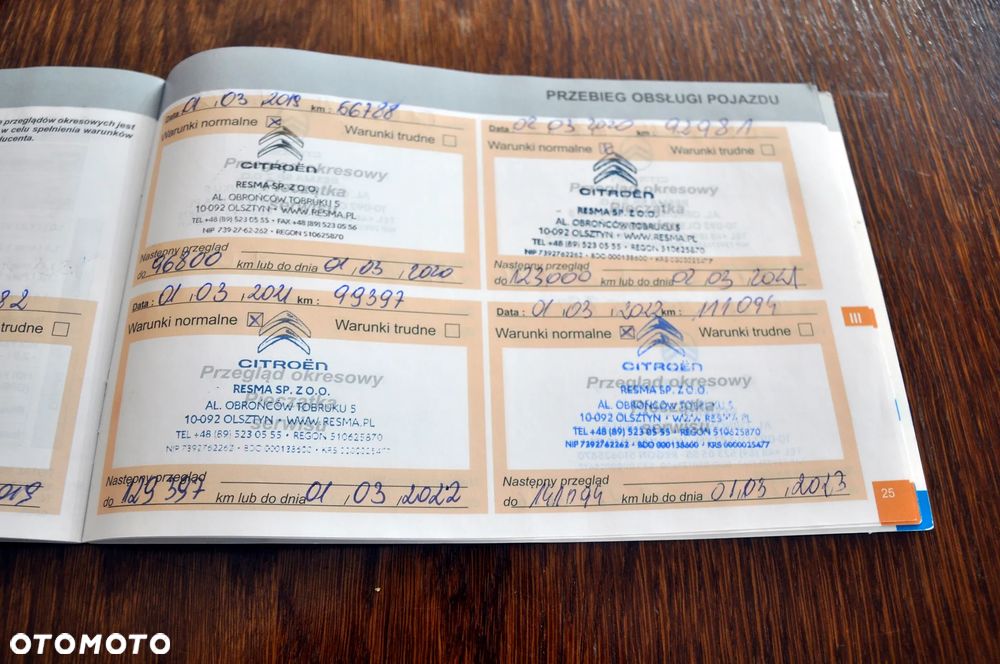 e przeglądów okresowych jest
w celu spełnienia warunków
ducenta.
82
trudne
2019
PRZEBIEG OBSŁUGI POJAZDU
Data 01 , 03 , 2019 km : 66788
Warunki normalne Warunki trudne
Przegląd okresowy
Pieczątka
CITROËN
RESMA SP. Z O.O.
AL. OBROŃCÓW TOBRUKU 5
10-092 OLSZTYN • WWW.RESMA.PL
TEL +48 (89) 523 05 55 • FAX +48 (89) 523 05 56
NIP 739-27-62-262 • REGON 510625870
Następny przegląd
do 96800 km lub do dnia 01 , 03 , 2020
Data 02 03 2020 km : 92981
Warunki normalne Warunki trudne
Przegląd okresowy
Pieczątka
CITROËN
RESMA SP. Z O.O.
AL. OBROŃCÓW TOBRUKU 5
10-092 OLSZTYN • WWW.RESMA.PL
TEL +48 (89) 523 05 55 • REGON 510625870
NIP 7392762262 • BDO 000138600 • KRS 0000025477
Następny przegląd
do 123000 km lub do dnia 02 03 , 2021
Data : 01 , 03 , 2021 km : 99397
Warunki normalne Warunki trudne
CITROËN
Przegląd okresowy
Pieczątka
serwisu
RESMA SP. Z O.O.
AL. OBROŃCÓW TOBRUKU 5
10-092 OLSZTYN • WWW.RESMA.PL
TEL +48 (89) 523 05 55 • REGON 510625870
NIP 7392762262 • BDO 000138600 • KRS 0000025477
Następny przegląd
do 129397 km lub do dnia 01 , 03 , 2022
Data : 01 , 03 , 2022 km : 111094
Warunki normalne Warunki trudne
CITROËN
Przegląd okresowy
Pieczątka
serwisu
RESMA SP. Z O.O.
AL. OBROŃCÓW TOBRUKU 5
10-092 OLSZTYN • WWW.RESMA.PL
TEL +48 (89) 523 05 55 • REGON 510625870
NIP 7392762262 • BDO 000138600 • KRS 0000025477
Następny przegląd
do 141094 km lub do dnia 01 , 03 , 2023
III
25
OTOMOTO